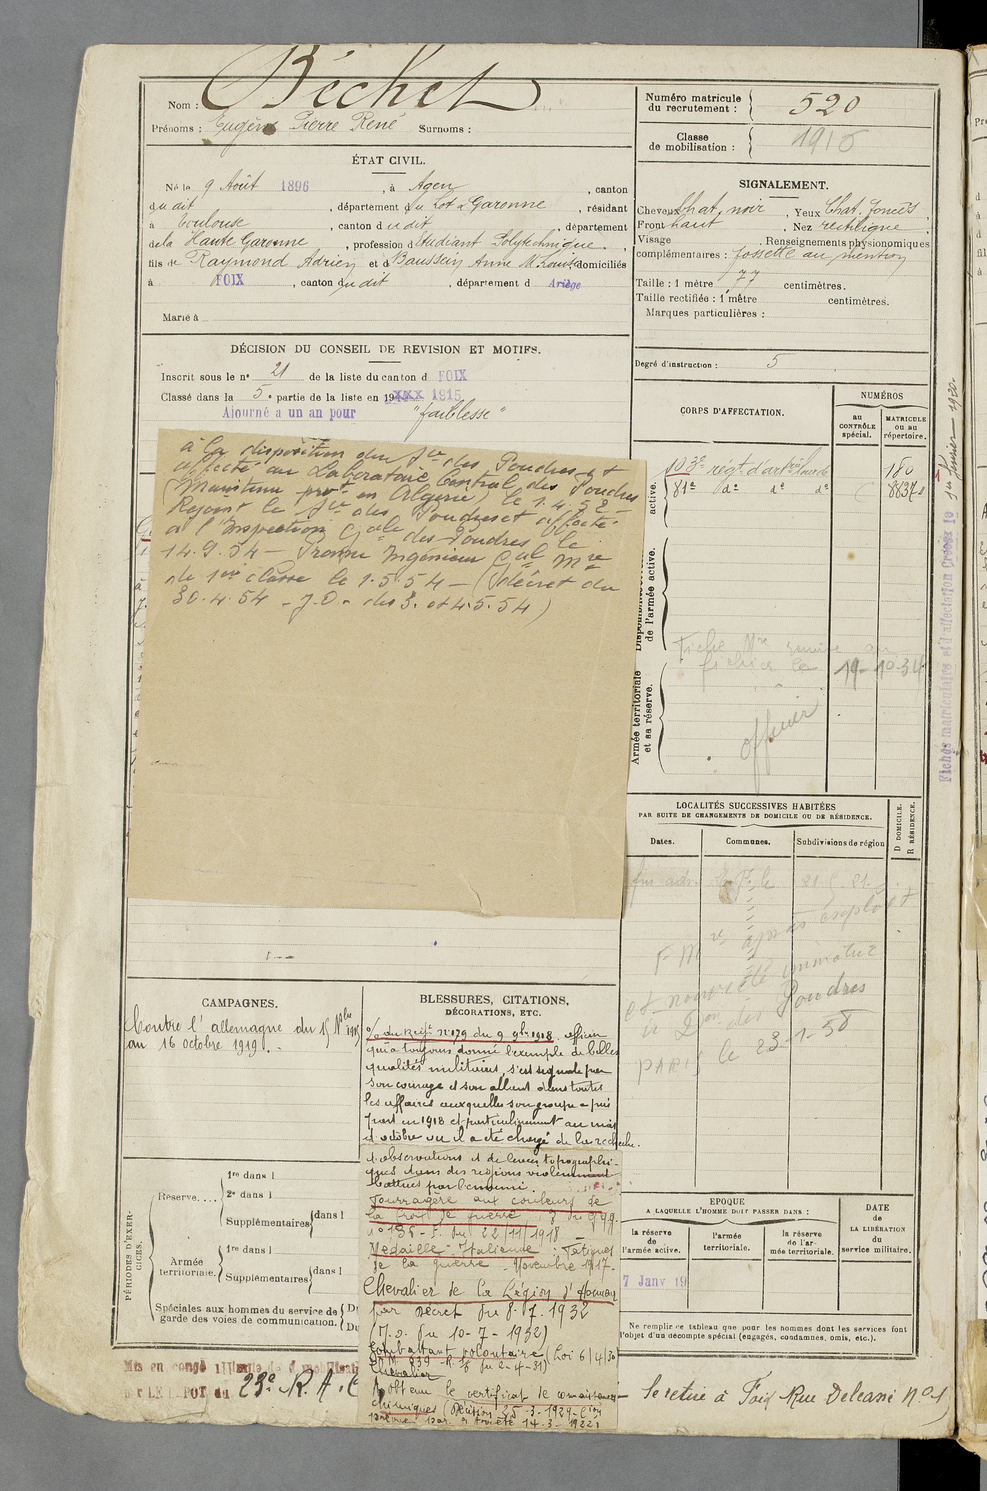 Nom : Béchet
Prénoms : Eugène Pierre René Surnoms :
Numéro matricule du recrutement : 520
Classe de mobilisation : 1916
ÉTAT CIVIL.
Né le 9 Août 1896, à Agen, canton
du dit, département du Lot & Garonne, résidant
à Toulouse, canton du dit, département
de la Haute Garonne, profession d'Etudiant Polytechnique.
fils de Raymond Adrien et d Baussein Anne M. Louise domiciliés
à FOIX, canton du dit, département d Ariège
Marié à
SIGNALEMENT.
Cheveux Chat. noir, Yeux Chat. foncés,
Front haut, Nez rectiligne,
Visage . Renseignements physionomiques
complémentaires : fossette au menton
Taille : 1 mètre 77 centimètres.
Taille rectifiée : 1 mètre centimètres.
Marques particulières :
Degré d'instruction : 5
DÉCISION DU CONSEIL DE REVISION ET MOTIFS.
Inscrit sous le n° 21 de la liste du canton d FOIX
Classé dans la 5e partie de la liste en 19 XXX 1915
Ajourné a un an pour "faiblesse"
à la disposition du Sce des Poudres et
affecté au Laboratoire Central des Poudres
(Maintenu provt en Algérie) le 1.4.52 –
Rejoint le Sce des Poudres et affecté
à l'Inspection Gale des Poudres le
14.9.54 – Promu Ingénieur Gal Mre
de 1ère classe le 1.5.54 – (décret du
30.4.54 – J.O. des 3. et 4.5.54)
CORPS D'AFFECTATION.
NUMÉROS
au CONTRÔLE spécial.
MATRICULE ou au répertoire.
active.
103e régt d'artrie lourde 180
81e do do do 8837
Disponibilité et réserve de l'armée active.
Fiche Mre remise au
fichier le 19-10-34
officier
Armée territoriale et sa réserve.
Fiches matriculaires et d'affectation Créées le 1er Février 1920
LOCALITÉS SUCCESSIVES HABITÉES
PAR SUITE DE CHANGEMENTS DE DOMICILE OU DE RÉSIDENCE.
Dates.
Communes.
Subdivisions de région
D DOMICILE.
R RÉSIDENCE.
et nouvelle immatric
Don des Poudres
PARIS le 23-1-58
CAMPAGNES.
Contre l'allemagne du 15 Nbre 1915
au 16 octobre 1919.
BLESSURES, CITATIONS,
DÉCORATIONS, ETC.
o/o du Régt n°179 du 9 9bre 1918. officier
qui a toujours donné l'exemple de belles
qualités militaires, s'est signalé par
son courage et son allant dans toutes
les affaires auxquelles son groupe a pris
part en 1918 et particulièrement au mois
d'octobre où il a été chargé de la recherche
d'observatoires et de levers topographi-
ques dans des régions violemment
battues par l'ennemi.
Fourragère aux couleurs de
la Croix de guerre
22/11/1918
Médaille Italienne : Fatigues
de la guerre. Novembre 1917.
Chevalier de la Légion d'Honneur
par décret du 8.7.1932
(J.O. du 10-7-1932)
Combattant volontaire (Loi 6/4/30)
du 2-4-31)
Chevalier
A obtenu le certificat de connaissances
chimiques (Décision 25-3-1924
14-3-1922
PÉRIODES D'EXERCICES.
Réserve....
1re dans l
2e dans l
Supplémentaires dans l
Armée territoriale.
1re dans l
Supplémentaires dans l
Spéciales aux hommes du service de garde des voies de communication.
Du
Du
EPOQUE
A LAQUELLE L'HOMME DOIT PASSER DANS :
la réserve de l'armée active.
l'armée territoriale.
la réserve de l'armée territoriale.
DATE de LA LIBÉRATION du service militaire.
7 Janv 19
Ne remplir ce tableau que pour les nommes dont les services font
l'objet d'un décompte spécial (engagés, condamnés, omis, etc.).
Mis en congé illimité de démobilisation
par LE DÉPOT du 23e R.A.C
Se retire à Foix Rue Delcassé N°1